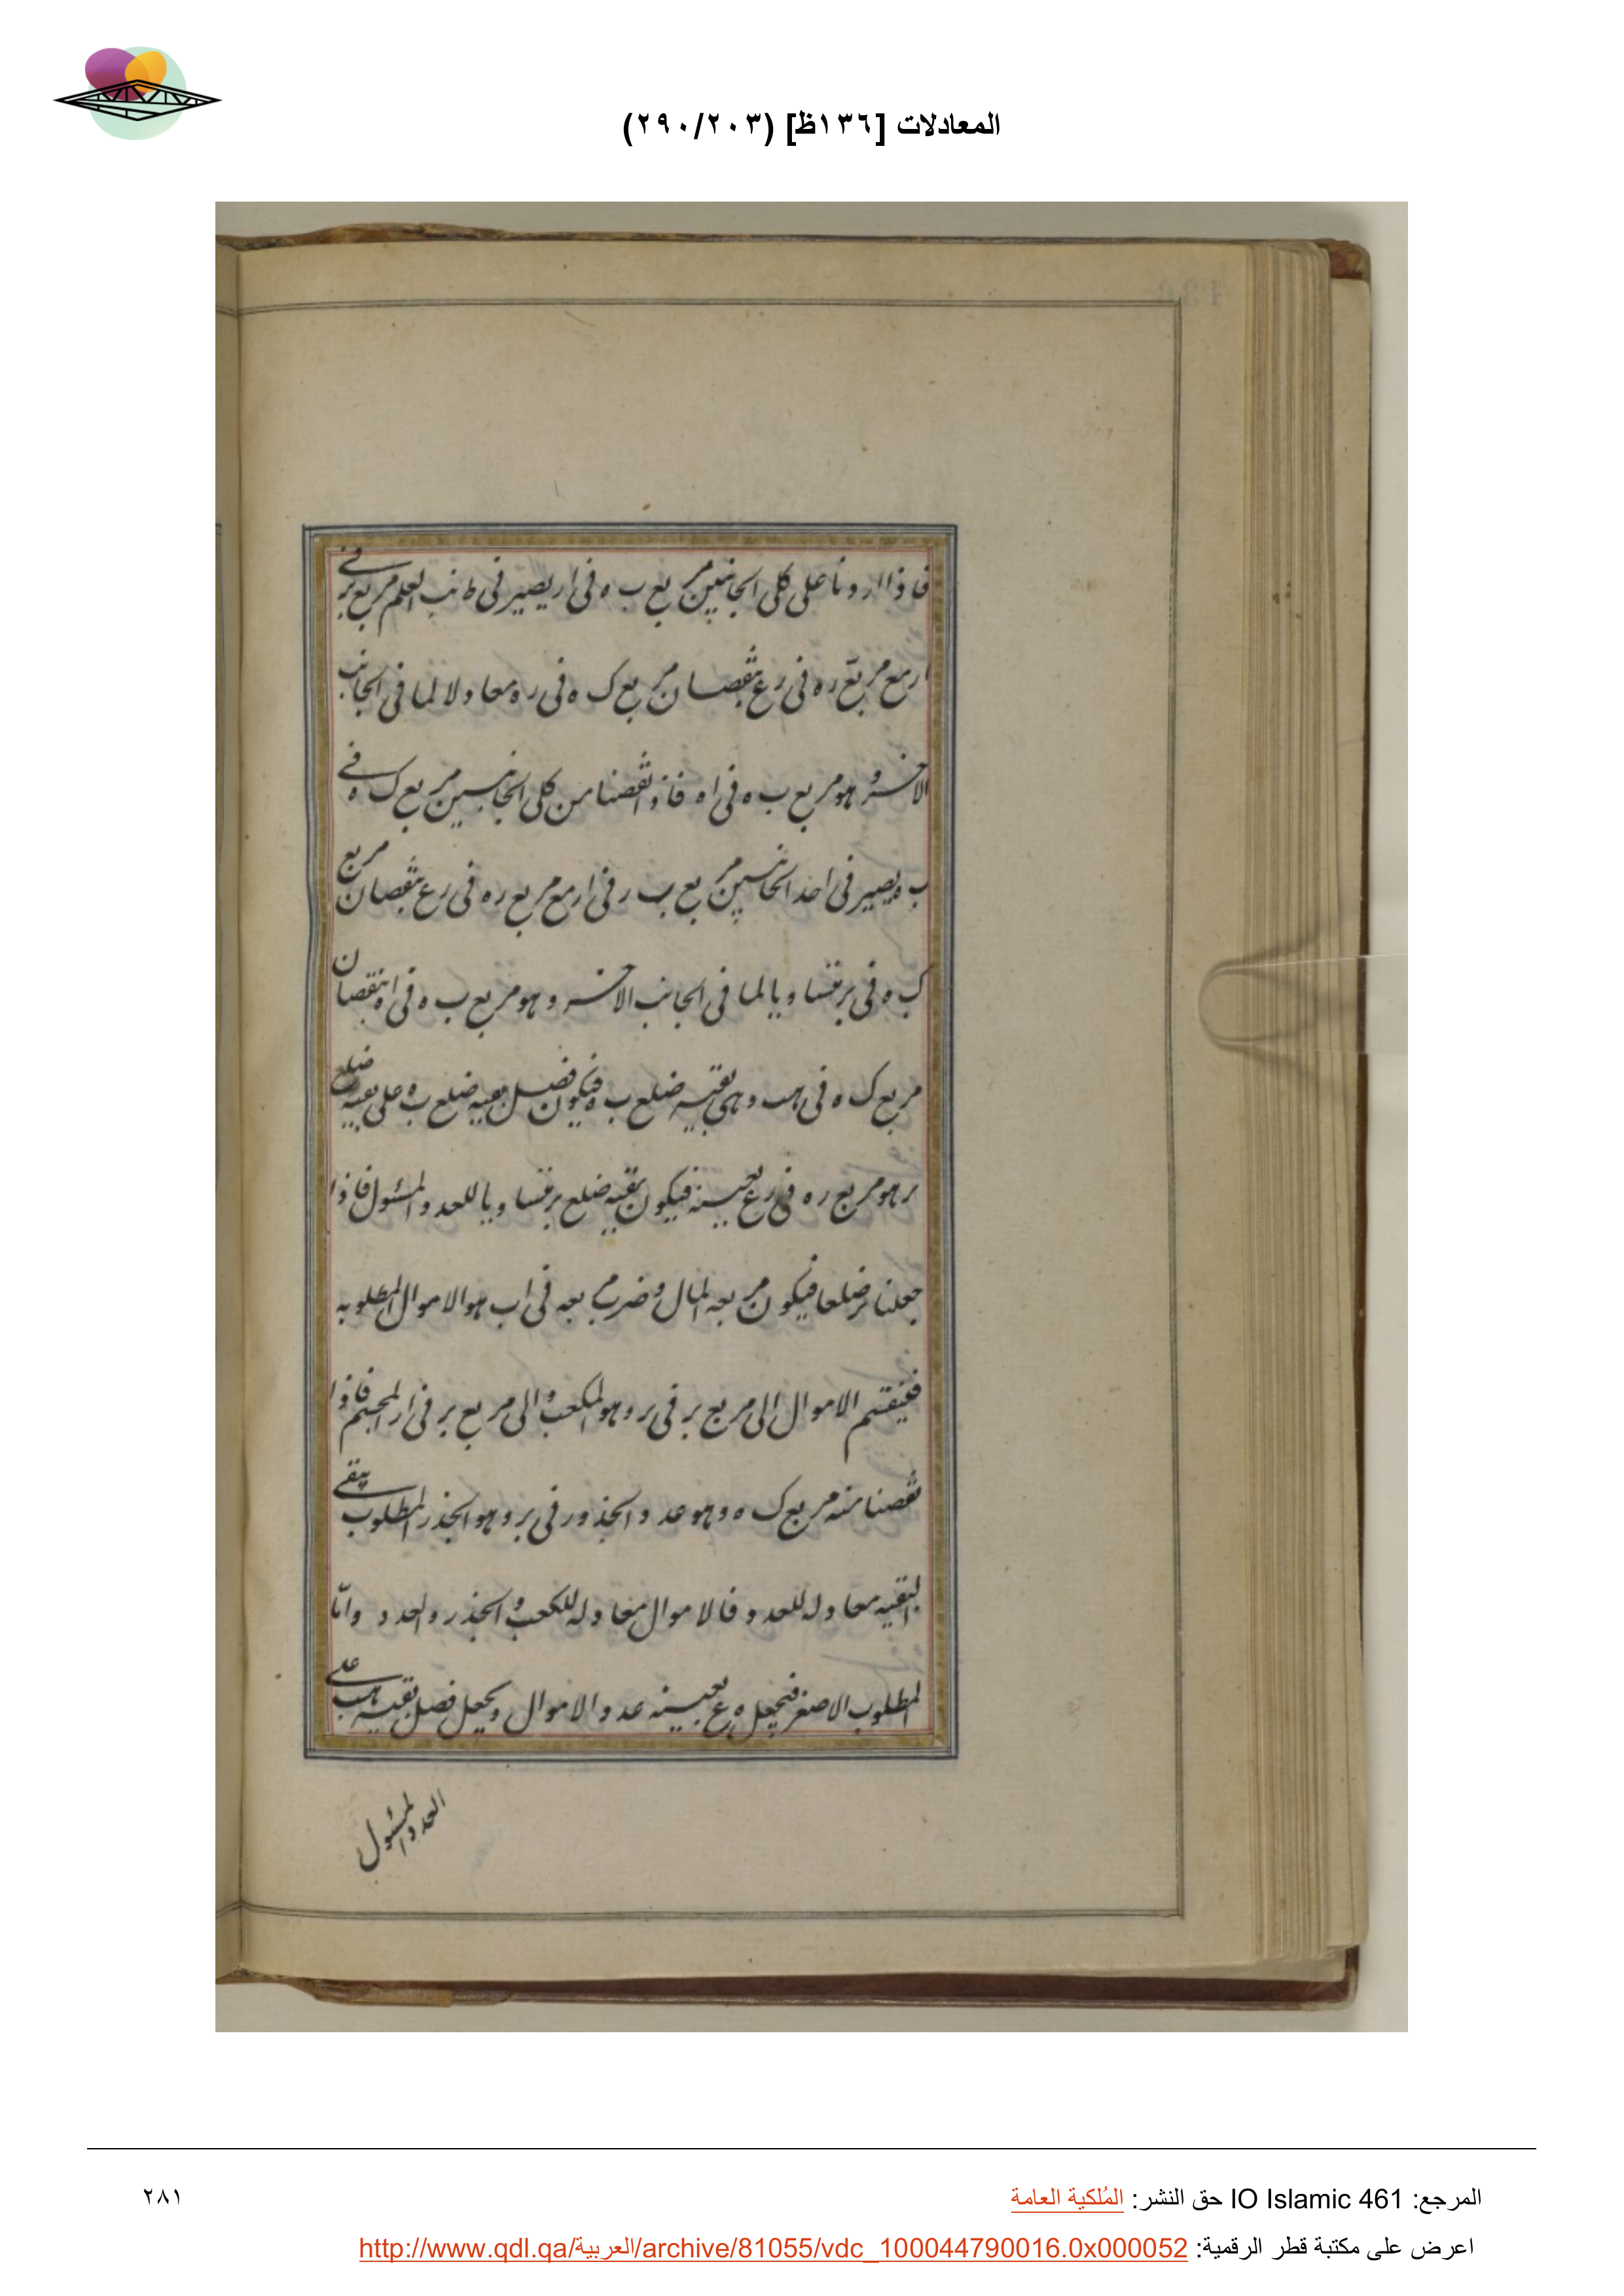 المعادلات [١٣٦ظ] (٢٩٠/٢٠٣)
فاذا اردنا على كلى الجانبين مربع ب ه فى ار يصير فى جانب العلم مربع بر فى
ار مع مربع ره فى رع بنقصان مربع ك ه فى ره معادلا لما فى الجانب
الاخر و هو مربع ب ه فى اه فاذا نقصنا من كلى الجانبين مربع ك ه فى
ب ه يصير فى احد الجانبين مربع ب ر فى ار مع مربع ره فى رع بنقصان مربع
ك ه فى بر متساويا لما فى الجانب الاخر و هو مربع ب ه فى اه بنقصان
مربع ك ه فى هب و هى بقيه ضلع ب ه فيكون فضل بقيه ضلع ب ه على بقيه ضلع
بر هو مربع ره فى رع بعينه فيكون بقيه ضلع بر متساويا للعدد المسئول فاذا
جعلنا بر ضلعا فيكون مربعه المال و ضرب مربعه فى اب هو الاموال المطلوبه
فينقسم الاموال الى مربع بر فى بر و هو المكعب و الى مربع بر فى ار المجسم فاذا
نقصنا منه مربع ك ه و هو عدد الجذور فى بر و هو الجذر المطلوب يبقى
البقيه معادله للعدد فالاموال معادله للكعب و الجذر و العدد و امّا
المطلوب الاصغر فنجعل ه ع بعينه عدد الاموال و نجعل فضل بقيه هب على
العدد المسئول
المرجع: IO Islamic 461 حق النشر: المُلكية العامة
٢٨١
اعرض على مكتبة قطر الرقمية: http://www.qdl.qa/العربية/archive/81055/vdc_100044790016.0x000052